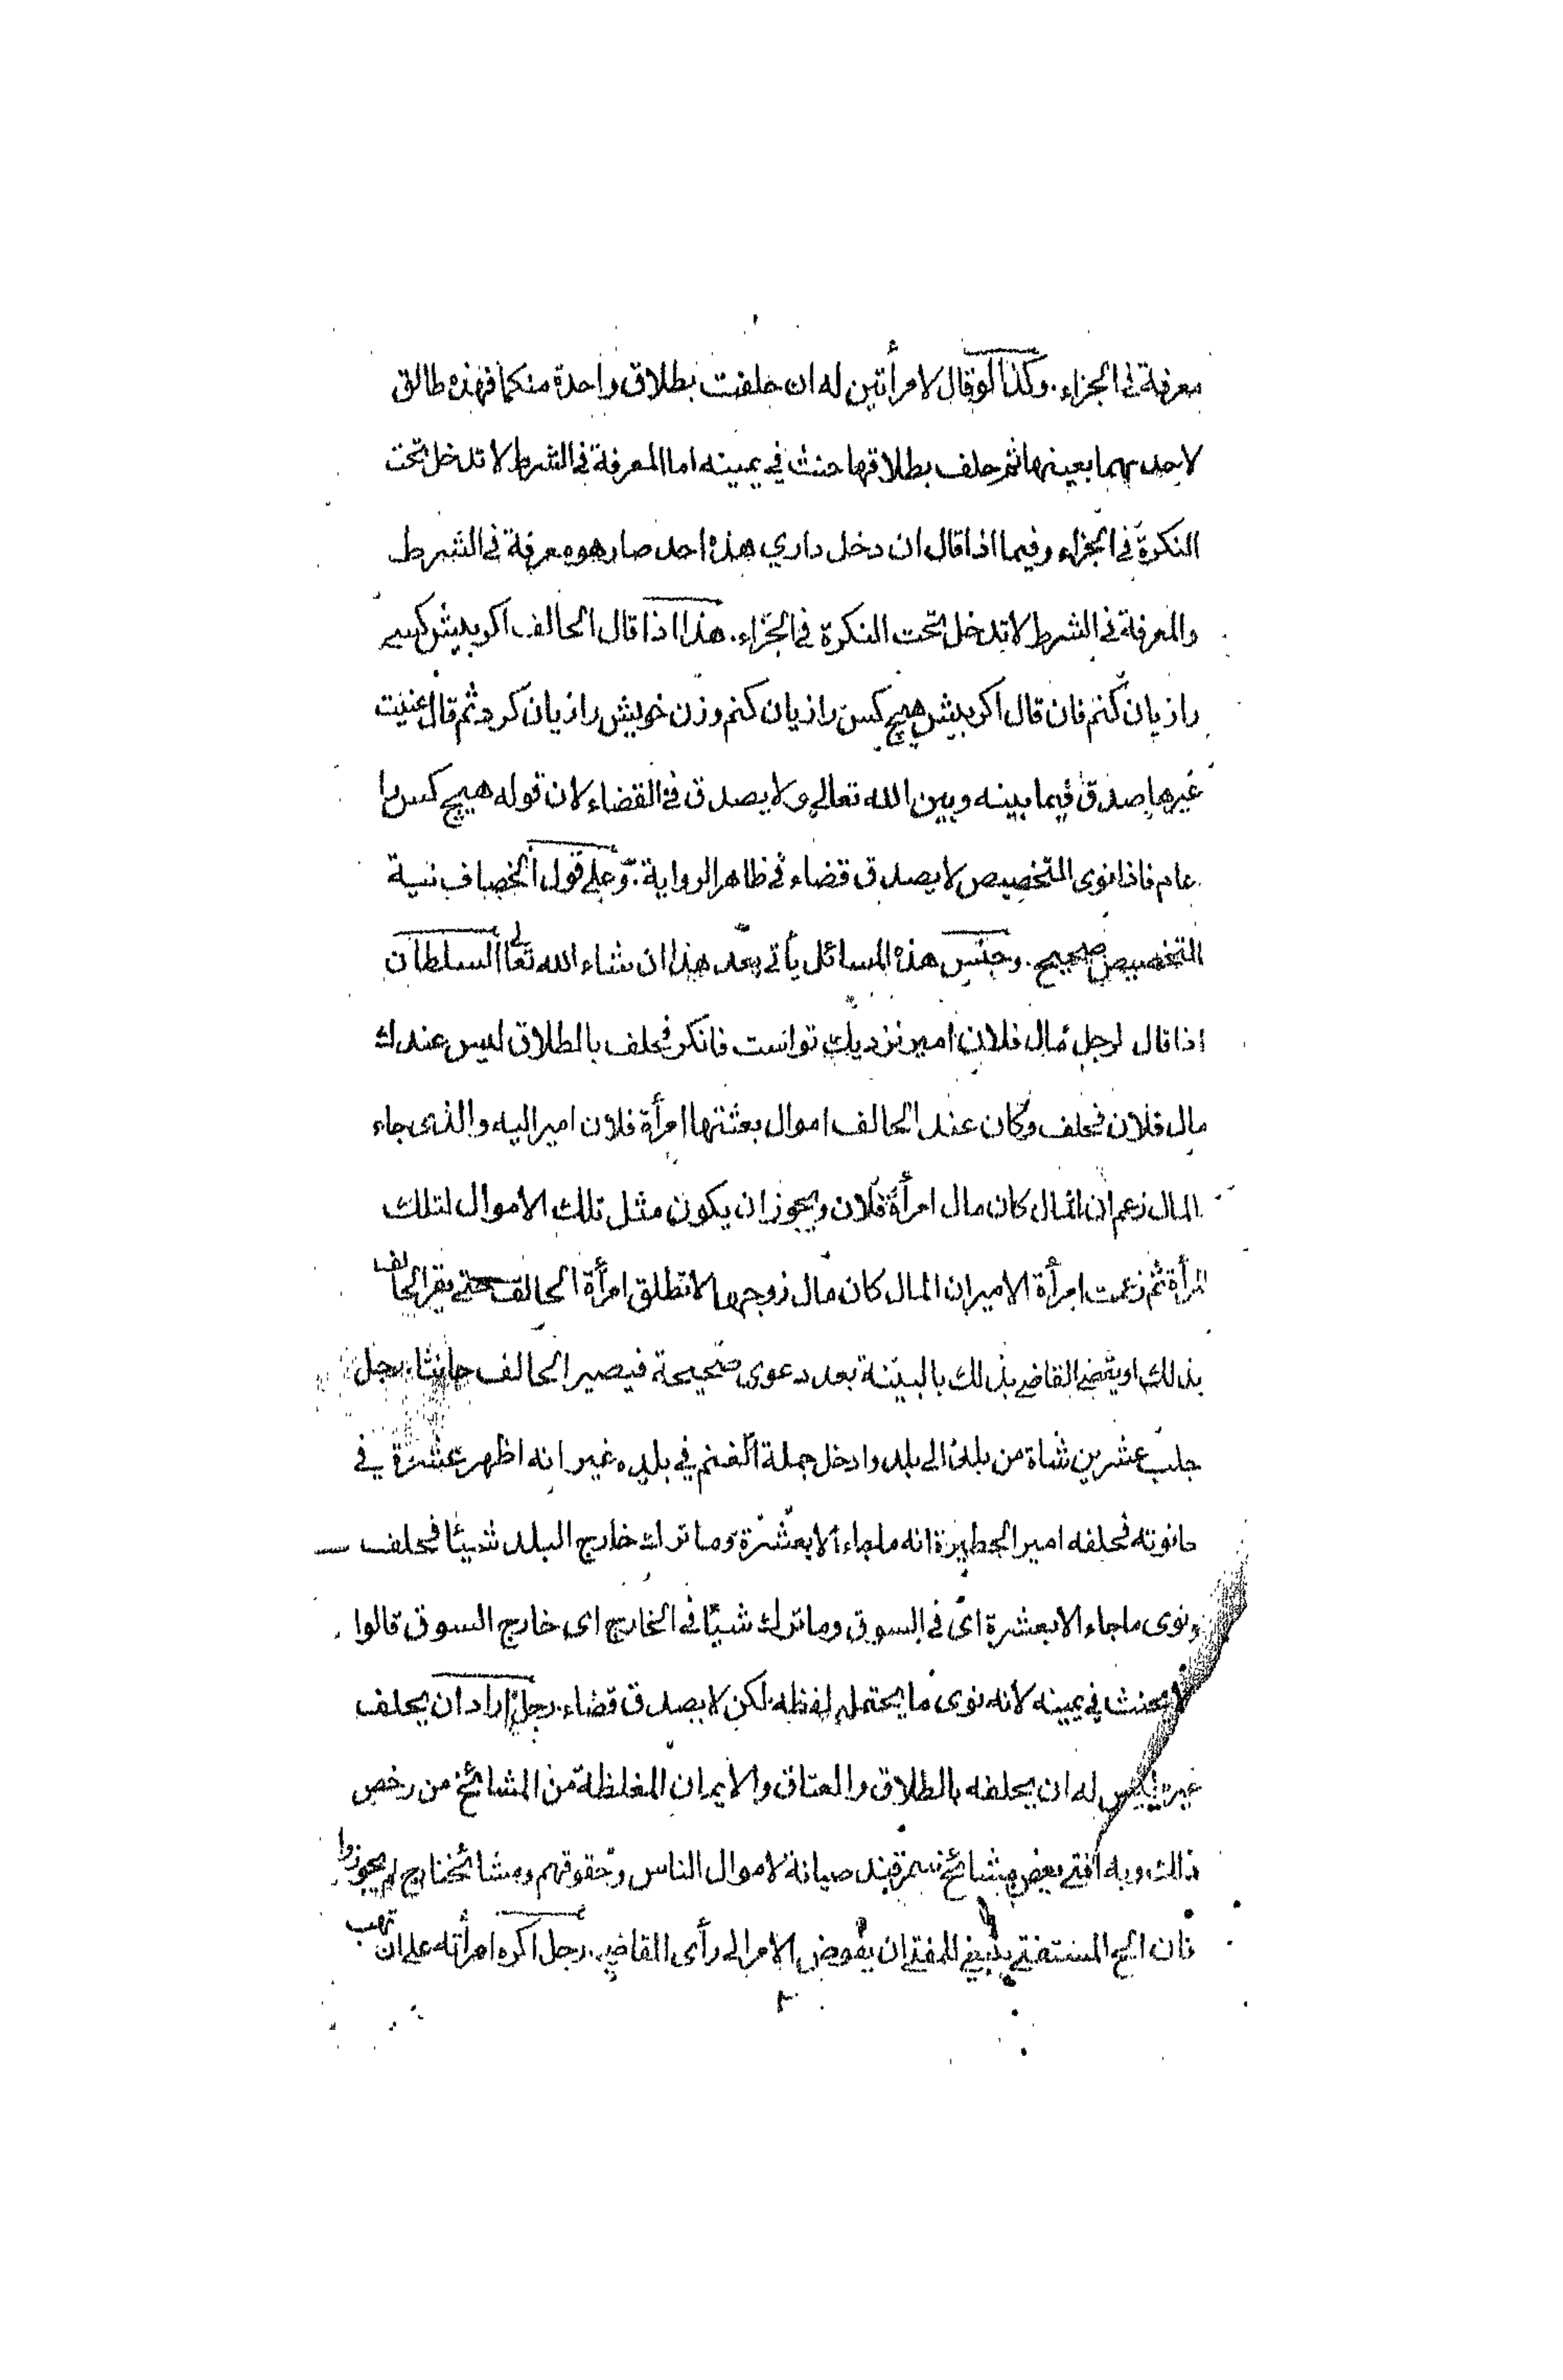 معرفة في الجزاء. وكذا لو قال لامرأتين له ان حلفت بطلاق واحدة منكما فهذه طالق
لاحديهما بعينها ثم حلف بطلاقها حنث في يمينه اما المعرفة في الشرط لا تدخل تحت
النكرة في الجزاء وفيما اذا قال ان دخل داري هذه احد صار هو معرفة في الشرط
والمعرفة في الشرط لا تدخل تحت النكرة في الجزاء. هذا اذا قال الحالف اكر بديش كسى
را زيان كنم فان قال اكر بديش هيچ كس را زيان كنم وزن خويش را زيان كرد ثم قال عنيت
غيرها صدق فيما بينه وبين الله تعالى ولا يصدق في القضاء لان قوله هيچ كس را
عام فاذا نوى التخصيص لا يصدق قضاء في ظاهر الرواية. وعلى قول الخصاف نية
التخصيص صحيح. وجنس هذه المسائل يأتي بعد هذا ان شاء الله تعالى السلطان
اذا قال لرجل مال فلان امير نزديك تواست فانكر فحلف بالطلاق ليس عندك
مال فلان فحلف وكان عند الحالف اموال بعثتها امرأة فلان امير اليه والذي جاء
المال زعم ان المال كان مال امرأة فلان ويجوز ان يكون مثل تلك الاموال لتلك
المرأة ثم زعمت امرأة الامير ان المال كان مال زوجها لا تطلق امرأة الحالف حتى يقر الحالف
بذلك او يقضي القاضي بذلك بالبينة بعد دعوى صحيحة فيصير الحالف حانثا. رجل
جلب عشرين شاة من بلد الى بلد وادخل جملة الغنم في بلده غير انه اظهر عشرة في
حانوته فحلفه امير الحظيرة انه ما جاء الا بعشرة وما ترك خارج البلد شيئا فحلف
ونوى ما جاء الا بعشرة اى في السوق وما ترك شيئا في الخارج اى خارج السوق قالوا
لا يحنث في يمينه لانه نوى ما يحتمله لفظه لكن لا يصدق قضاء. رجل اراد ان يحلف
غيره ليس له ان يحلفه بالطلاق والعتاق والايمان المغلظة من المشائخ من رخص
ذلك وبه افتى بعض مشائخ سمرقند صيانة لاموال الناس وحقوقهم ومشائخنا رح لم يجوزوا
فان الح المستفتي ينبغي للمفتي ان يفوض الامر الى رأى القاضي. رجل اكره امرأته على ان تهب